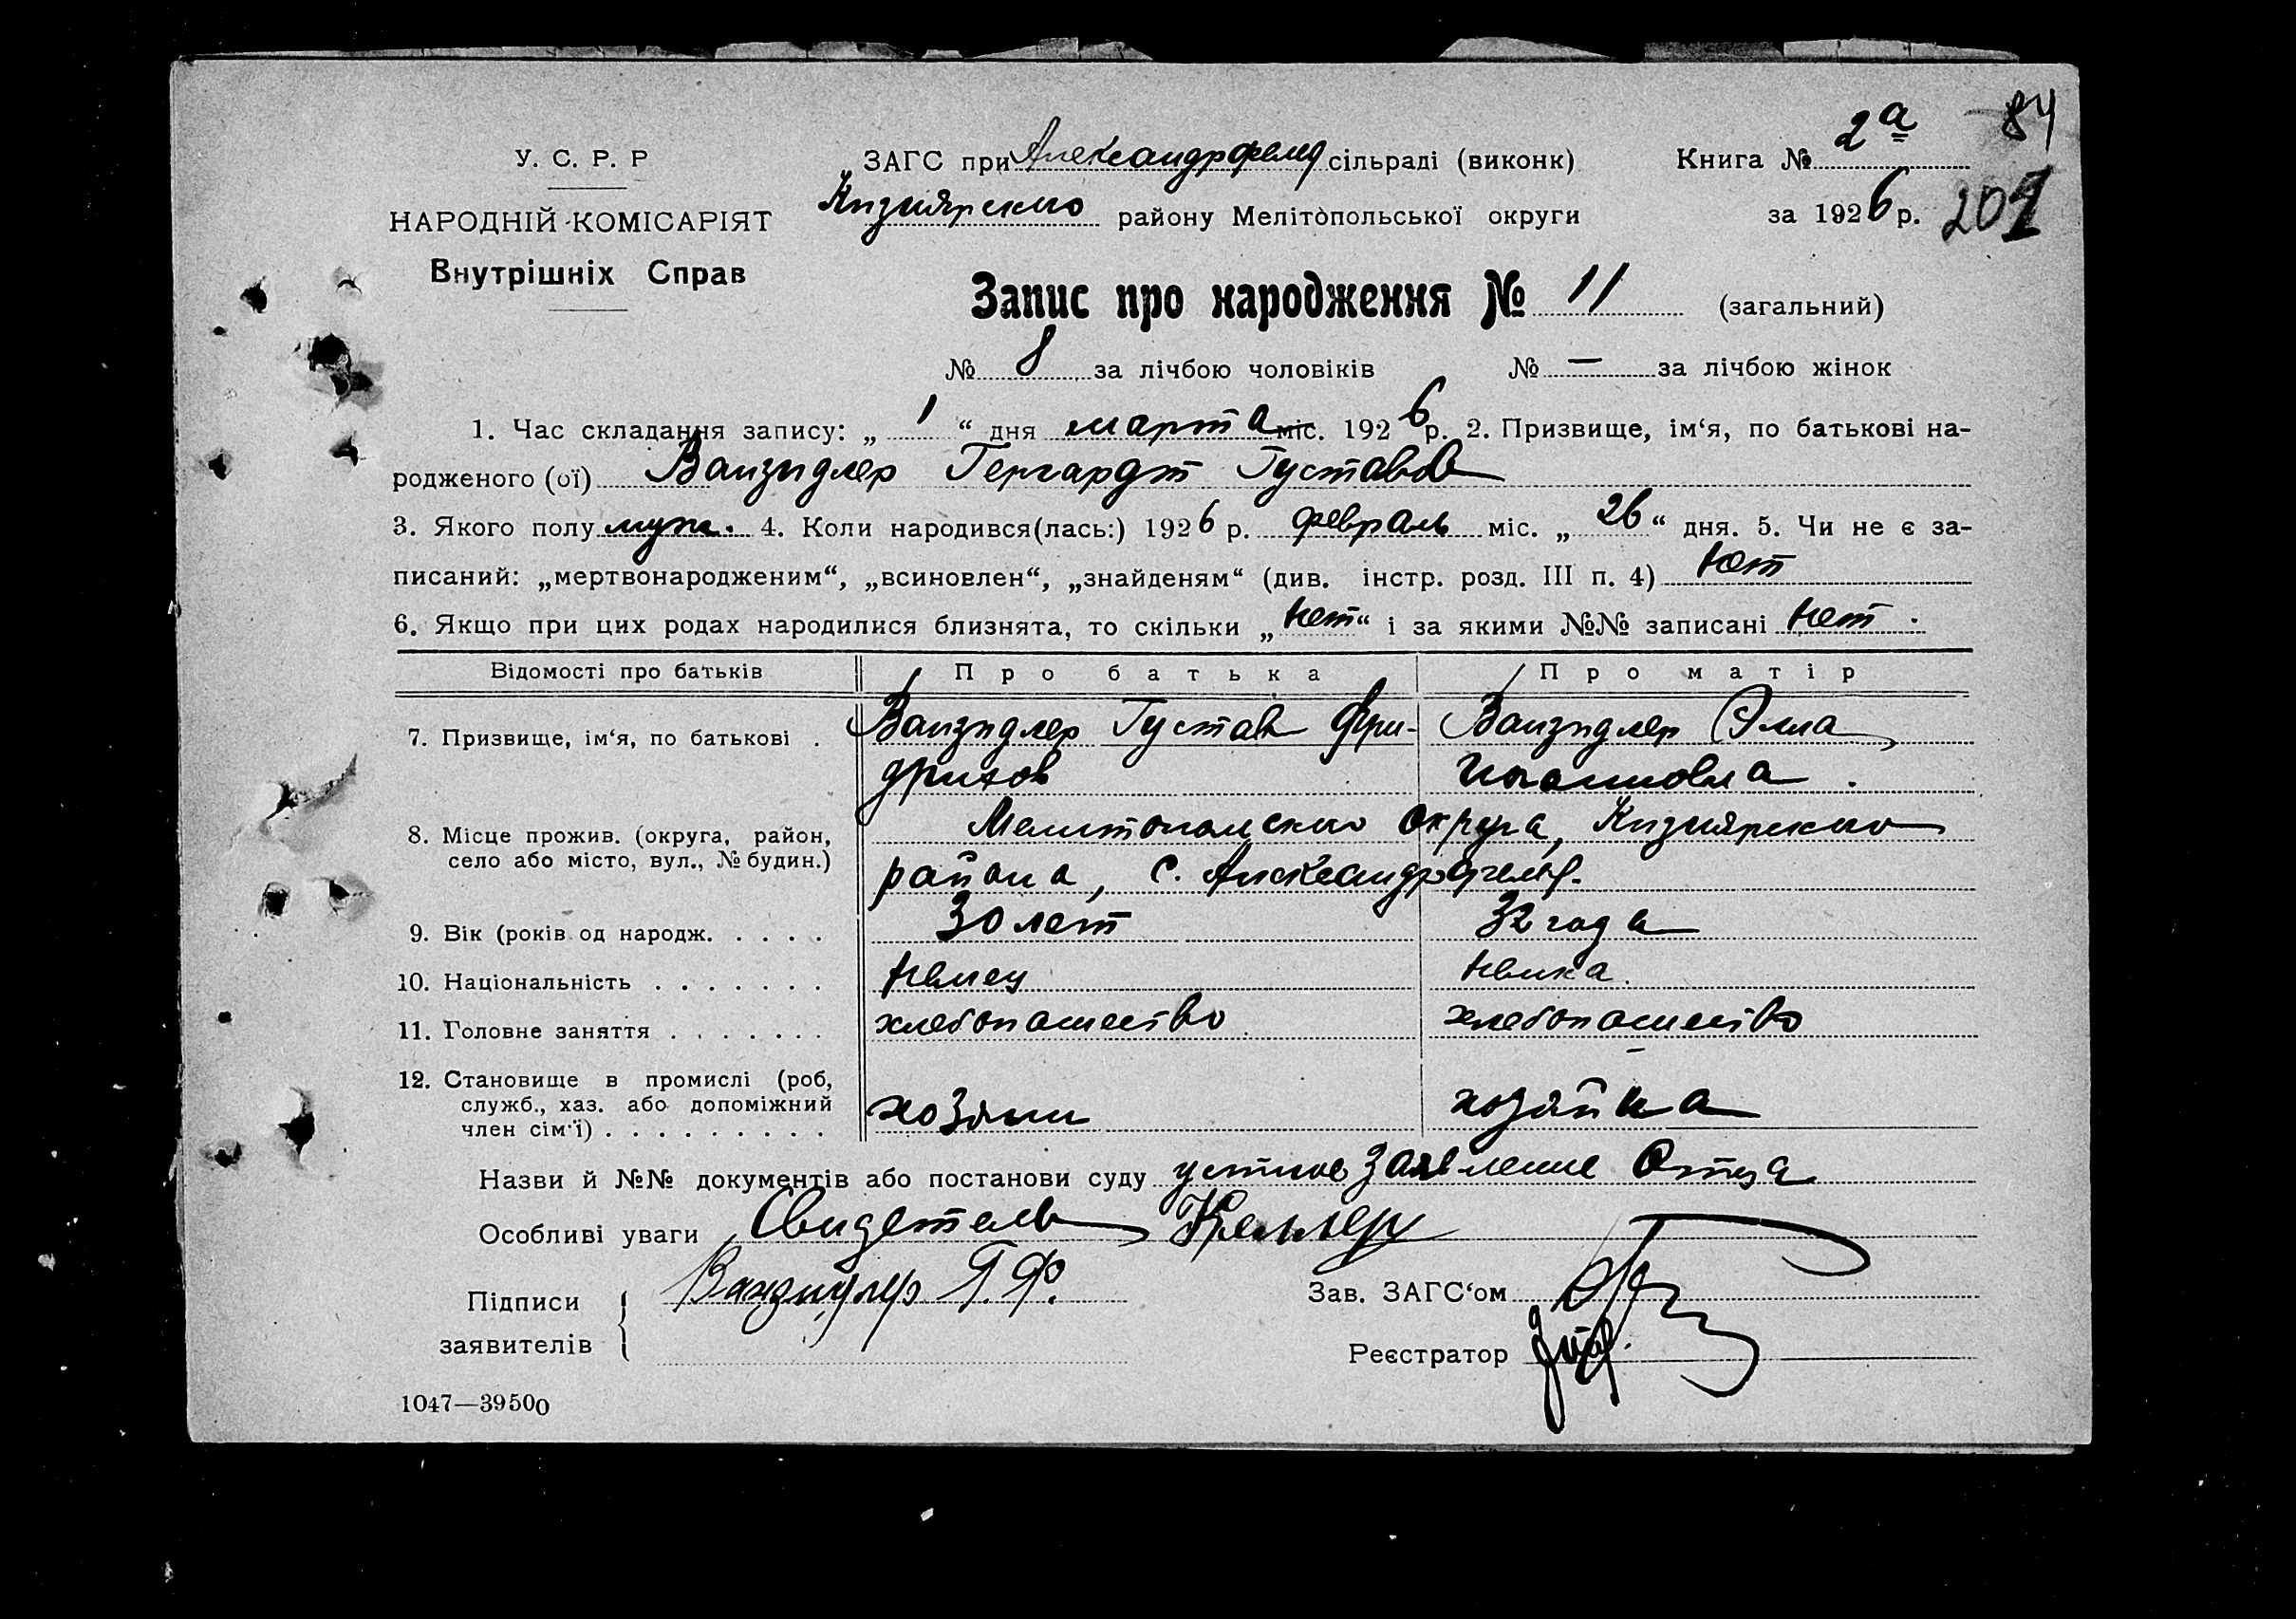 84
У. С. Р. Р
ЗАГС при Александрфельд сільраді (виконк)
Книга № 2а
НАРОДНІЙ КОМІСАРІЯТ
Кизиярского району Мелітопольської округи
за 1926 р.
201
Внутрішніх Справ
Запис про народження № 11 (загальний)
№ 8 за лічбою чоловіків № — за лічбою жінок
1. Час складання запису: „ 1 “ дня марта міс. 1926 р. 2. Призвище, ім‘я, по батькові на-
родженого (ої) Ванзидлер Гергардт Густавов
3. Якого полу муж. 4. Коли народився(лась:) 1926 р. февраль міс. „ 26 “ дня. 5. Чи не є за-
писаний: „мертвонародженим“, „всиновлен“, „знайденям“ (див. інстр. розд. III п. 4) нет
6. Якщо при цих родах народилися близнята, то скільки „ нет “ і за якими №№ записані нет.
Відомості про батьків Про батька Про матір
7. Призвище, ім‘я, по батькові . Ванзидлер Густав Фри- Ванзидлер Элла
дрихов Ивановна.
Мелитопольского округа, Кизиярского
8. Місце прожив. (округа, район,
село або місто, вул., № будин.)
района, с. Александрфельд.
9. Вік (років од народж. . . . . 30 лет 32 года
10. Національність . . . . . . . немец немка.
11. Головне заняття . . . . . . . хлебопашество хлебопашество
12. Становище в промислі (роб,
служб., хаз. або допоміжний
член сім‘ї) . . . . . . . . . хозяин хозяйка
Назви й №№ документів або постанови суду устное заявление отца
Особливі уваги Свидетель Келлер
Підписи Ванзидлер Г. Ф.
Зав. ЗАГС‘ом
заявителів
Реєстратор
1047—39500